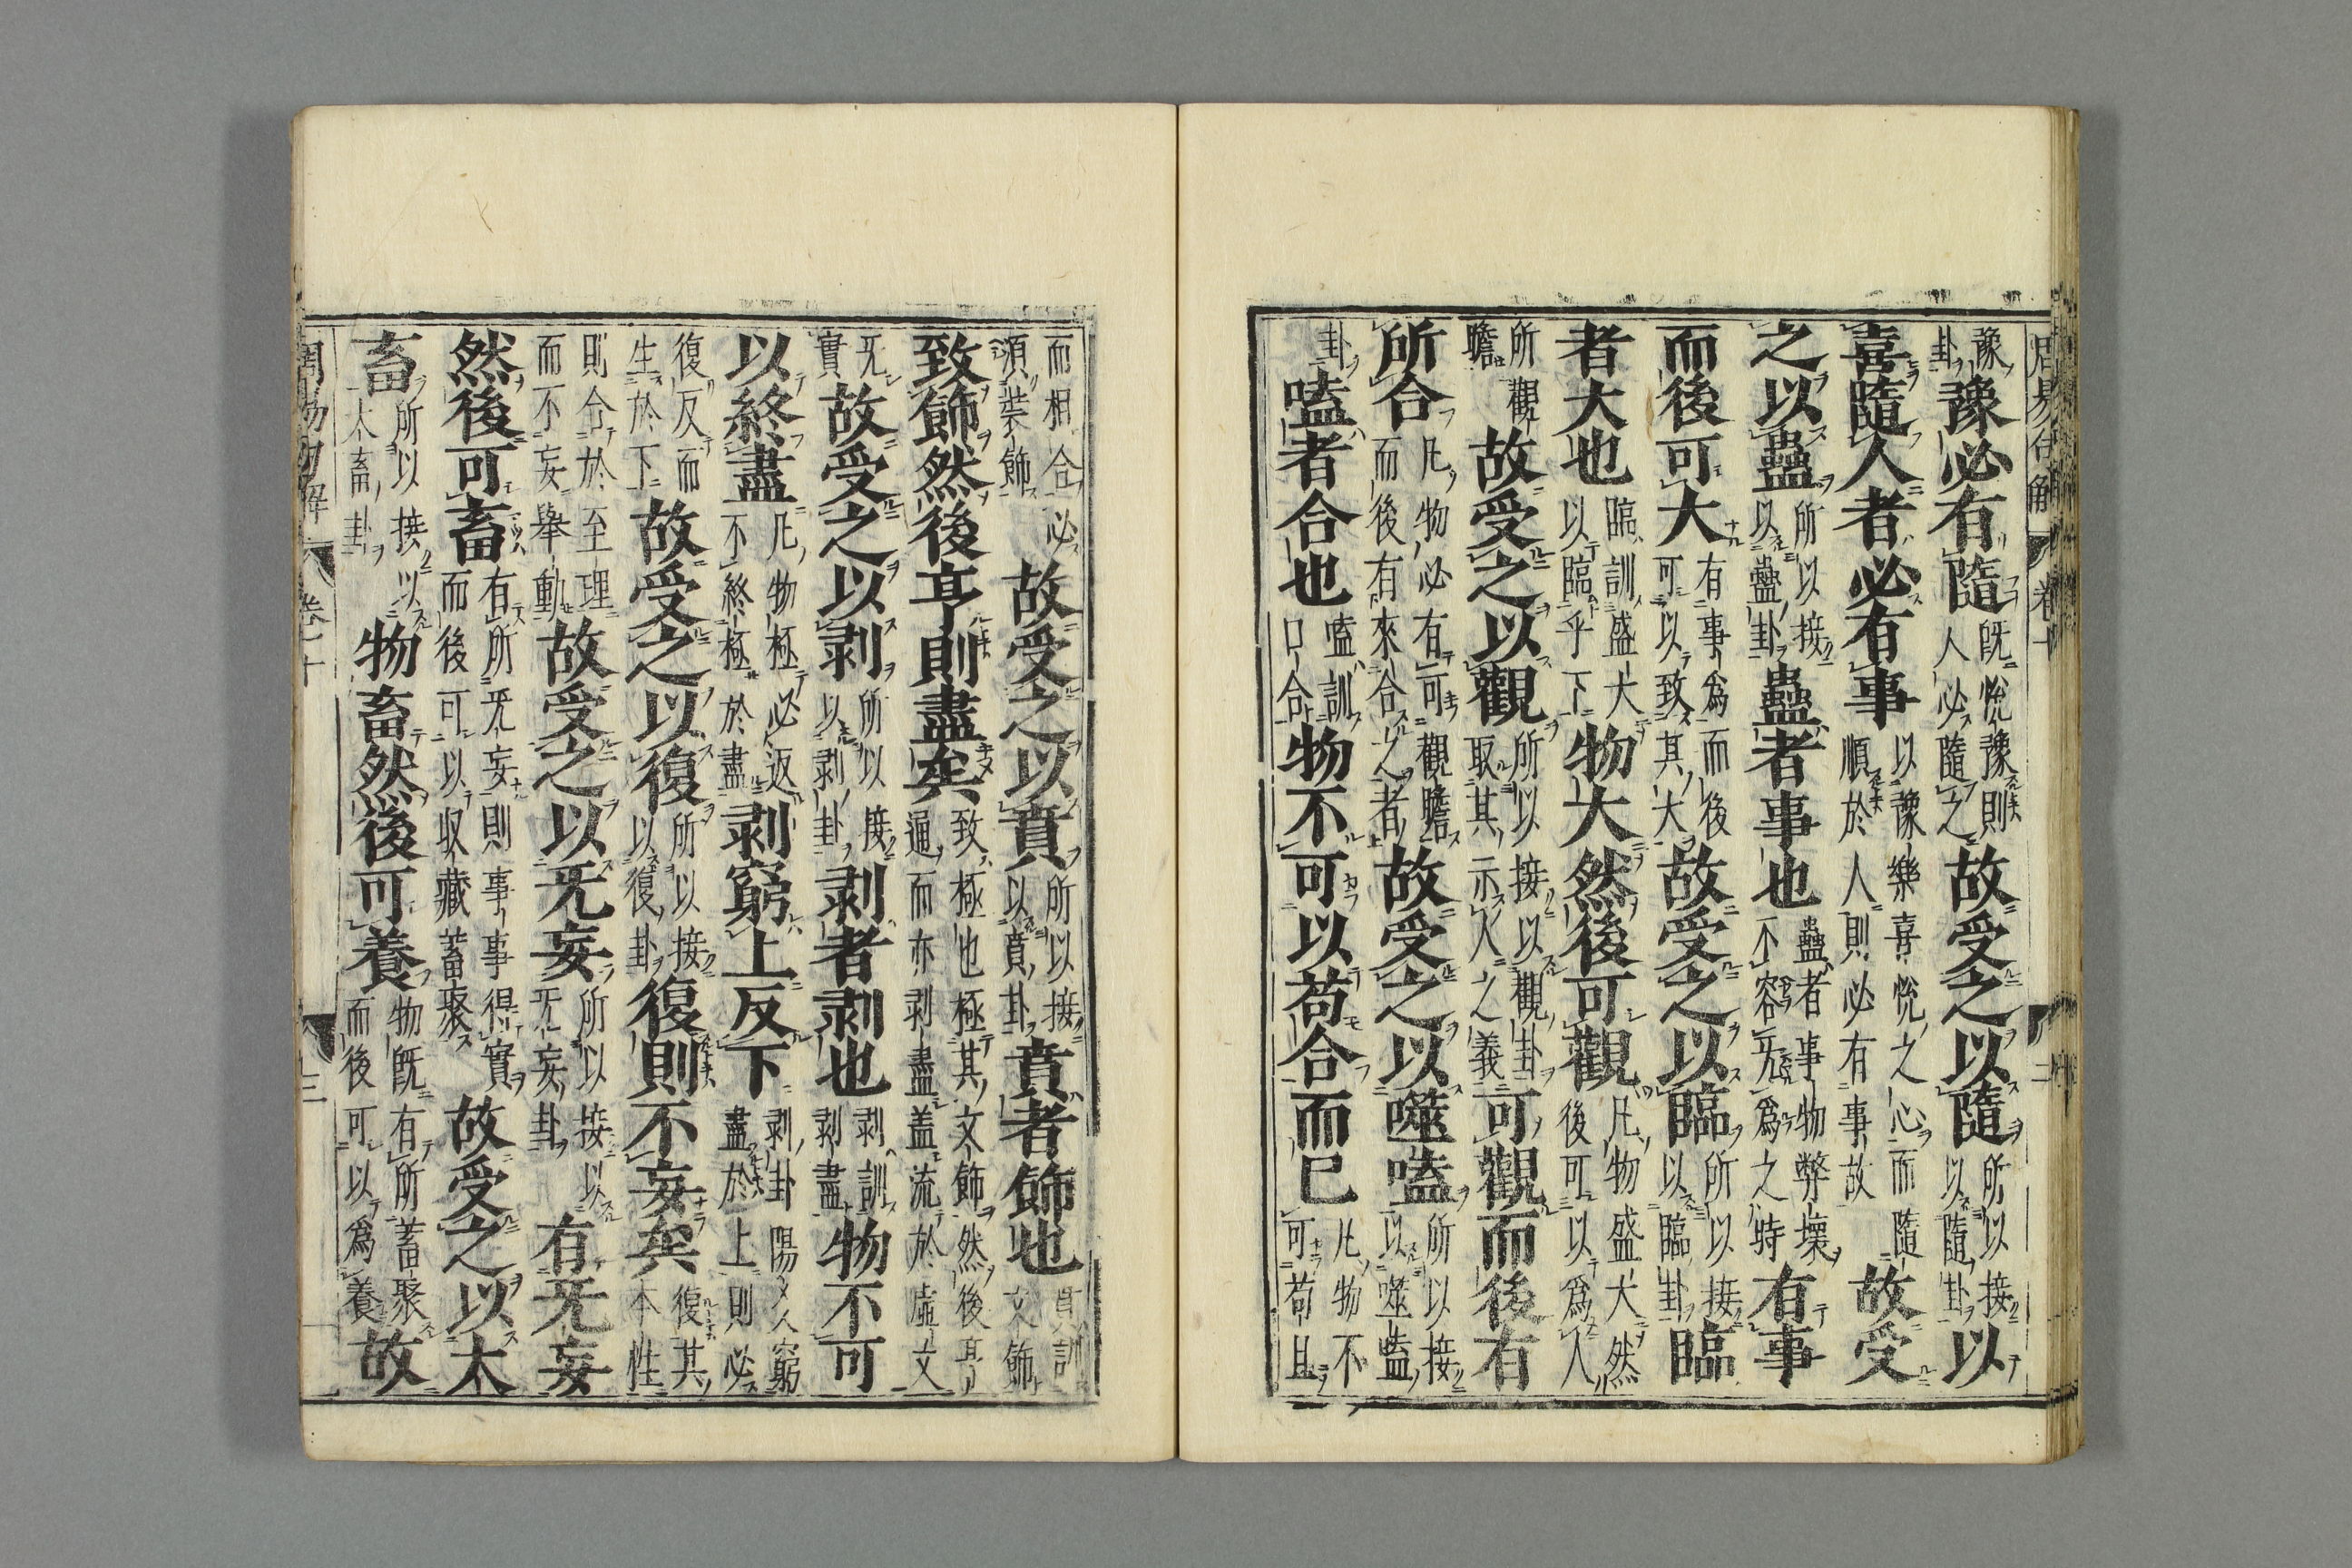 周易句解 卷十 二
豫卦豫必有隨既悅豫則人必隨之故受之以隨所以接以隨卦以
喜隨人者必有事以豫樂喜悅之心而隨順於人則必有事故故受
之以蠱所以接以蠱卦蠱者事也蠱者事物弊壞不容无爲之時有事
而後可大有事爲而後可以致其大故受之以臨所以接以臨卦臨
者大也臨訓盛大以臨乎下物大然後可觀凡物盛大然後可以爲人
所觀瞻故受之以觀所以接以觀卦取其示人之義可觀而後有
所合凡物必有可觀瞻而後有來合之者故受之以噬嗑所以接以噬嗑
卦嗑者合也嗑訓口合物不可以苟合而已凡物不可苟且
而相合必須裝飾故受之以賁所以接以賁卦賁者飾也賁訓文飾
致飾然後亨則盡矣致極也極其文飾然後亨通而亦剥盡盖流於虛文
无實故受之以剥所以接以剥卦剥者剥也剥訓剥盡物不可
以終盡凡物極必返不終極於盡剥窮上反下剥卦陽爻窮盡於上則必
復反而生於下故受之以復所以接以復卦復則不妄矣復其本性
則合於至理而不妄舉動故受之以无妄所以接以无妄卦有无妄
然後可畜有所无妄則事事得實而後可以收藏蓄聚故受之以大
畜所以接以大畜卦物畜然後可養物既有所蓄聚而後可以爲養故
周易句解 卷十 三